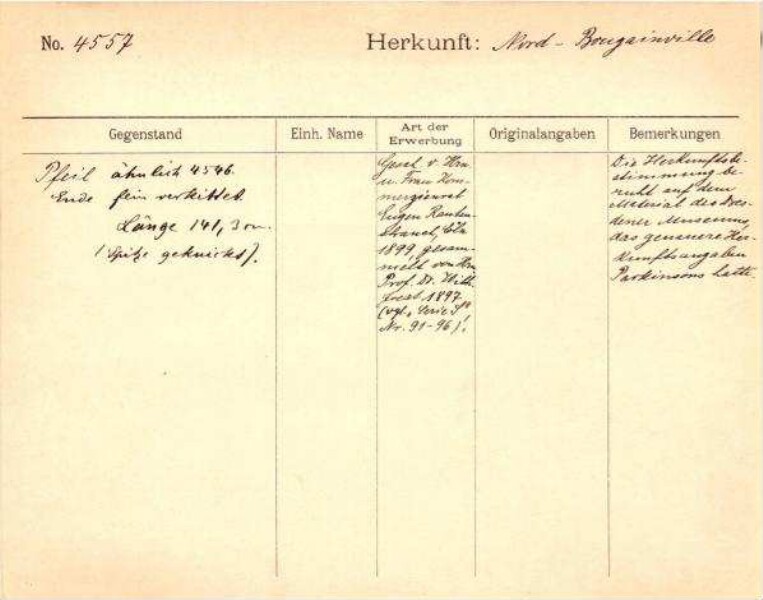 No. 4557
Herkunft: Nord - Bougainville
Gegenstand
Einh. Name
Art der
Erwerbung
Originalangaben
Bemerkungen
Pfeil ähnlich 4546.
Ende fein verkittet.
Länge 141,3 cm.
(Spitze geknickt).
Gesch. v. Hrn
u. Frau Kom-
merzienrat
Eugen Rauten-
strauch, Cöln
1899, gesam-
melt von Hrn
Prof. Dr. With.
1897
(vgl. Serie
Nr. 91-96)!
Die Herkunftsbe-
stimmung be-
ruht auf dem
Material des Dres-
dener Museums,
das genauere Her-
kunftsangaben
Parkinsons hatte.